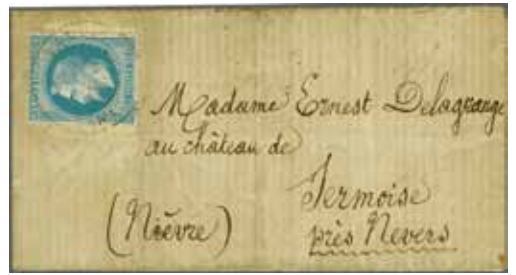 Madame Ernest Delagrange
au château de
Sermoise
(Nièvre)
près Nevers